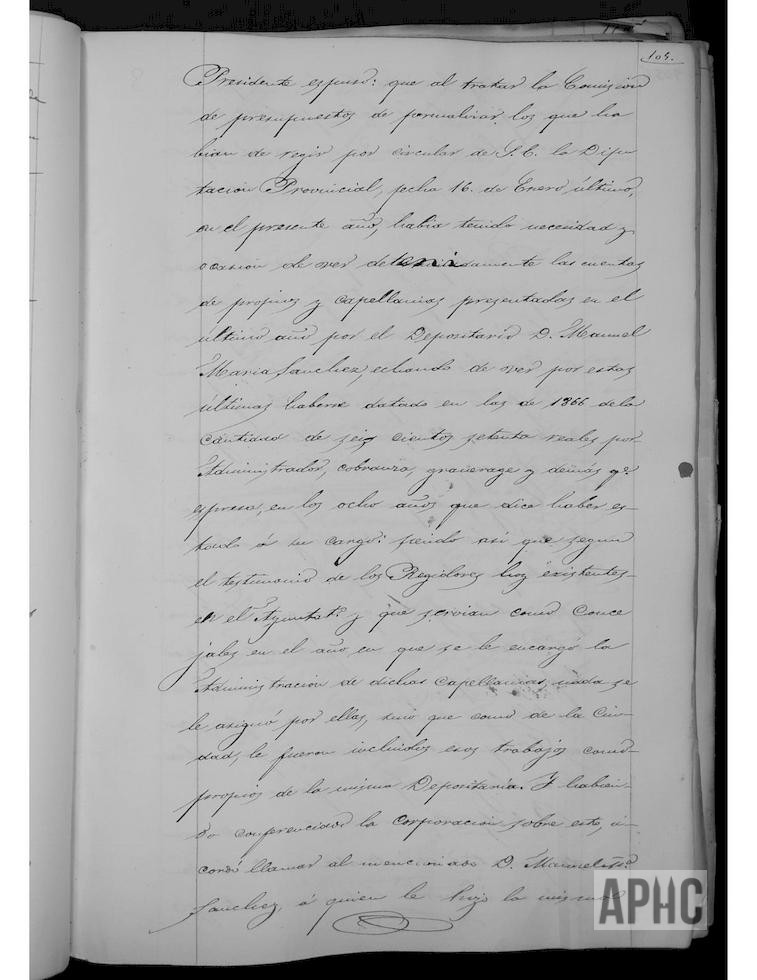 104.
Presidente espuso: que al tratar la Comision
de presupuestos de formalizar los que ha
bian de regir por circular de S. E. la Dipu
tacion Provincial, fecha 16. de Enero último,
en el presente año, habia tenido necesidad y
ocasion de ver detenidamente las cuentas
de propios y capellanias presentadas en el
último año por el Depositario D. Manuel
Maria Sanchez, echando de ver por estas
últimas haberse datado en las de 1866 de la
cantidad de seis cientos setenta reales por
Administrador, cobranza, y demás qe.
espresa, en los ocho años que dice haber es-
tado á su cargo: siendo asi que segun
el testimonio de los Regidores hoy existentes
en el Ayuntato. y que servian como Conce
jales en el año en que se le encargó la
Administracion de dichas Capellanias, nada se
le asignó por ellas, sino que como de la Ciu-
dad, le fueron incluidos esos trabajos como
propios de la misma Depositaria. Y habien-
do conferenciado la Corporacion sobre este, a-
cordó llamar al mencionado D. Manuel Ma.
Sanchez, á quien le hizo la misma
APHC